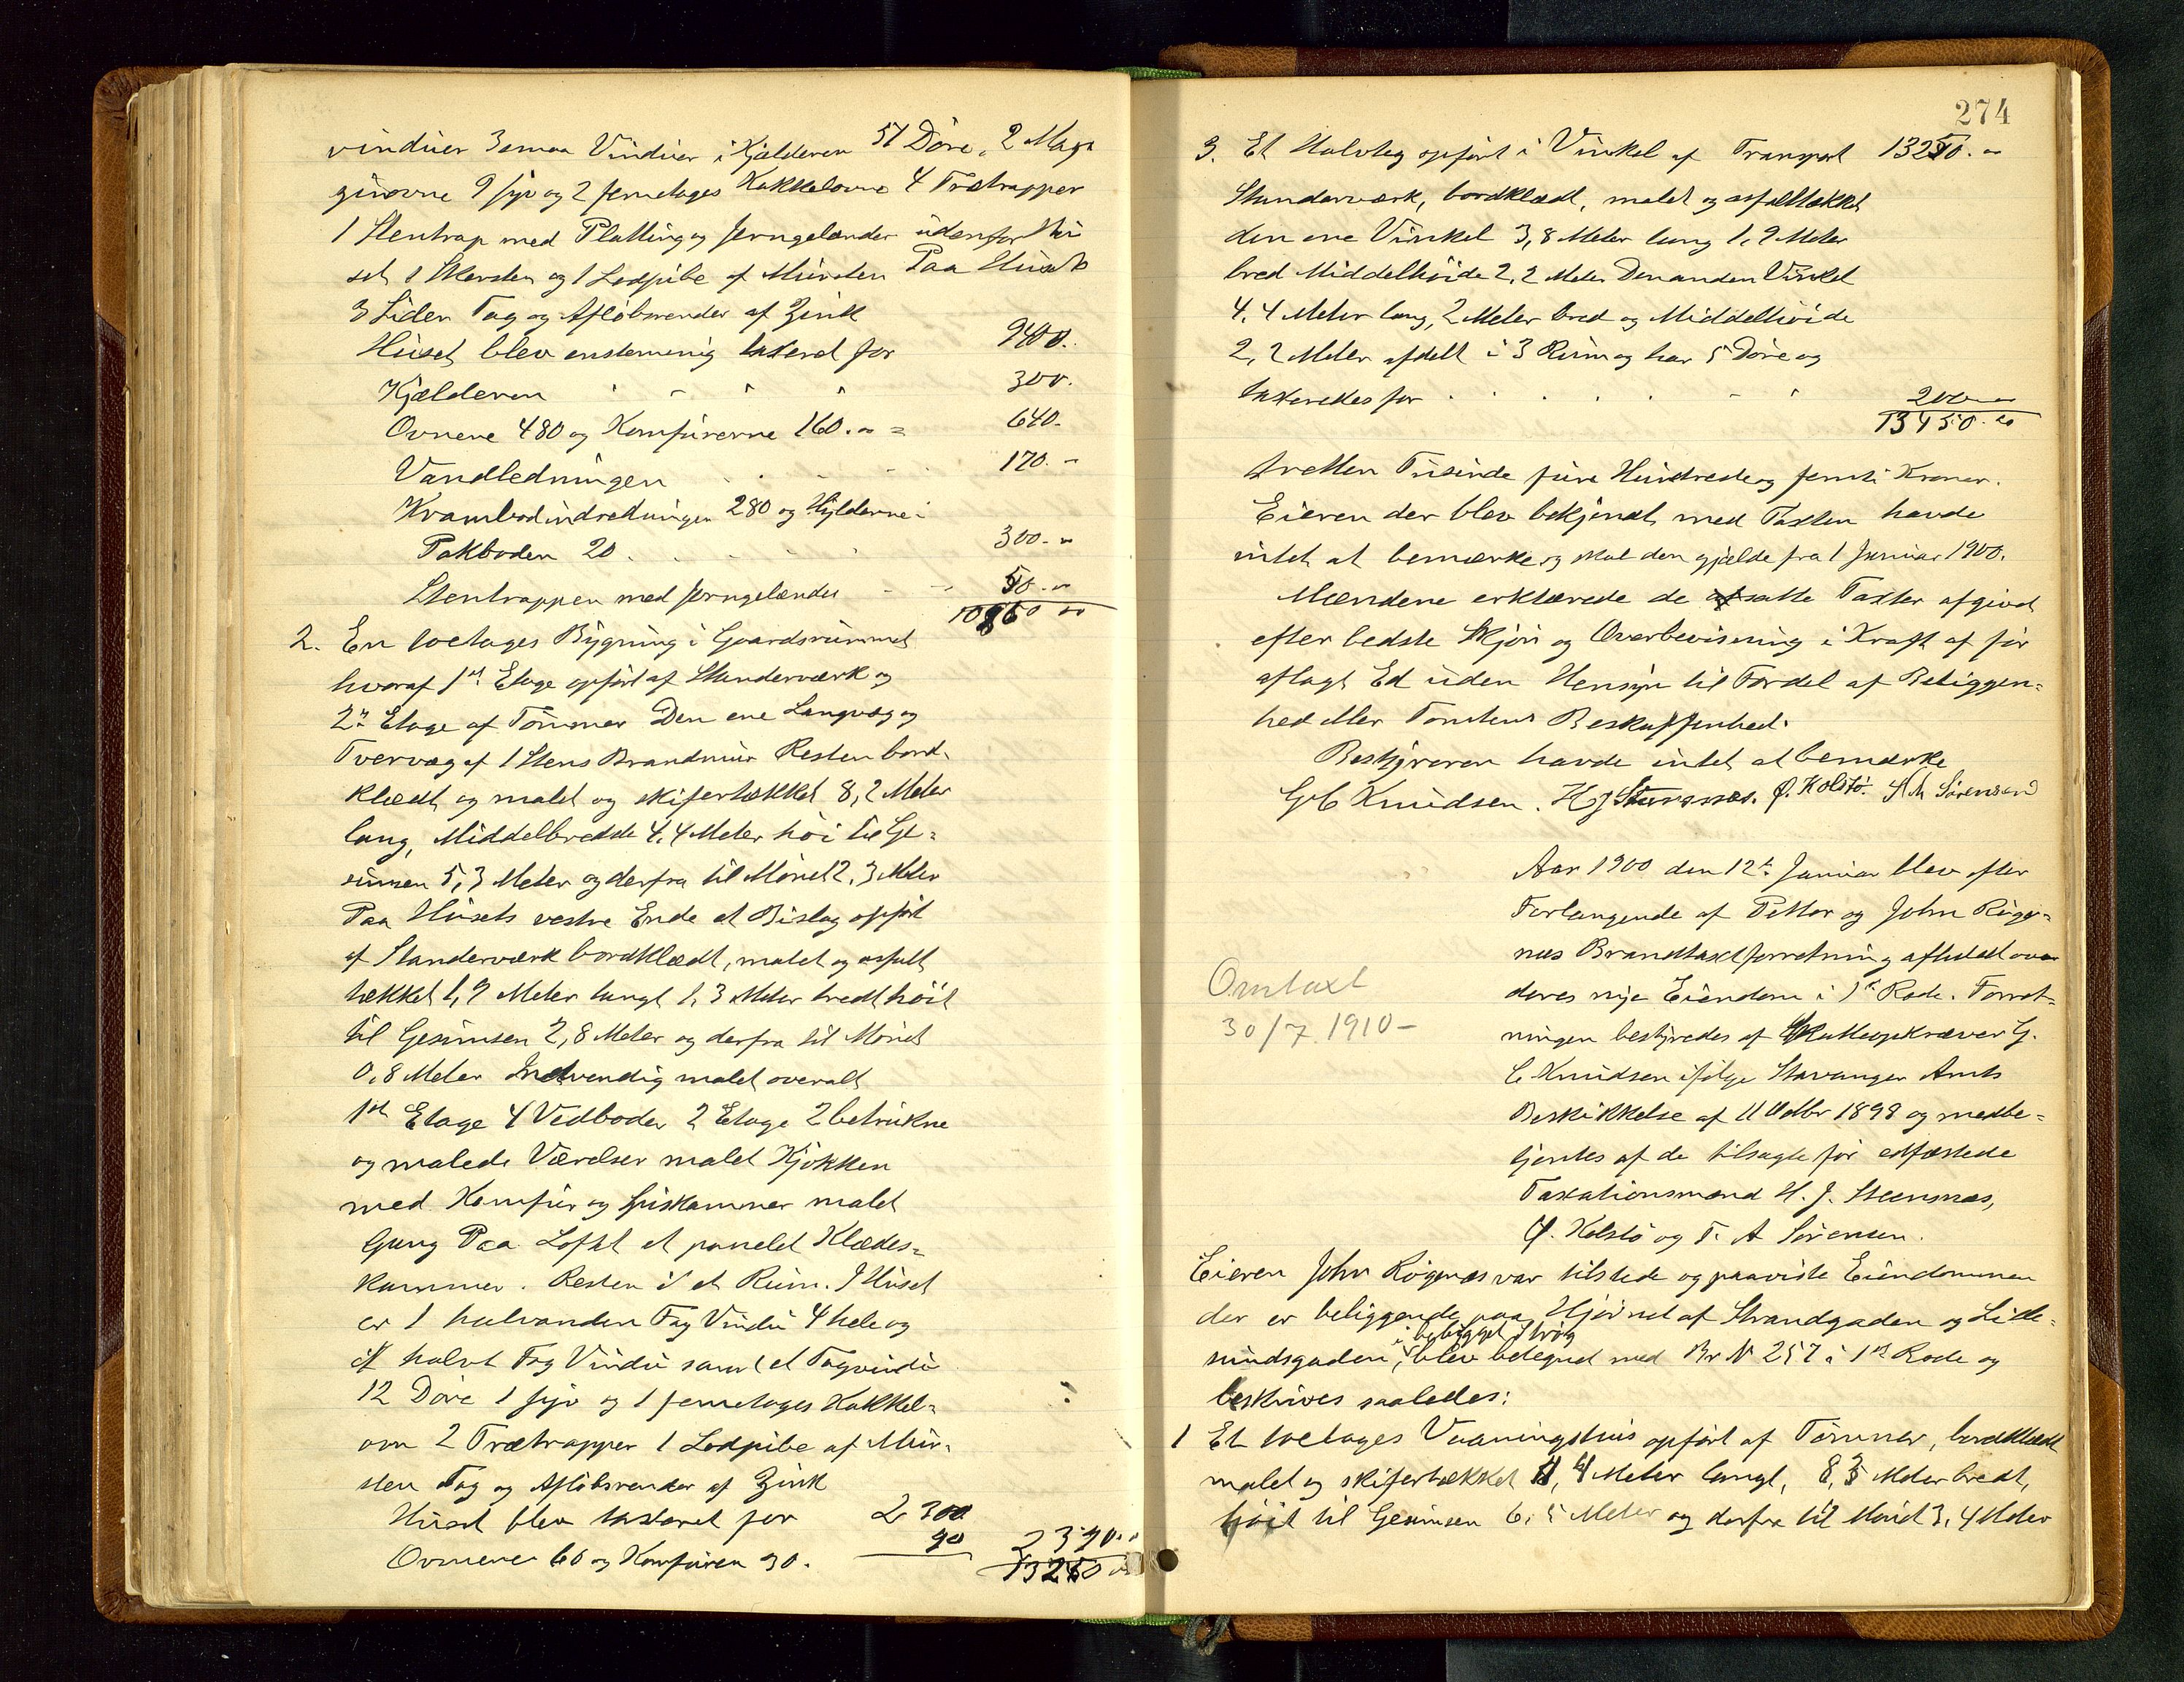 vinduer 3 smaa Vinduer i Kjælderen 51 Döre, 2 Maga
ginovne 9 syv og 2 femetages Kakkelovne 4 Trætrapper
1 Stentrap med Platting og Jerngelænder udenfor Hu
set 1 Skorsten og 1 Lodpibe af Mursten Paa Husets
3 Sider Tag og Aflöbsrender af Zink
Huset blev enstemmig taxeret for 9400.
Kjælderen 300.
Ovnene 480 og Komfurerne 160.00 = 640.
Vandledningen 170.-
Krambodindretningen 280 og Hylderne i
Pakboden 20 . 300.00
Stentrappen med Jerngelænder 50.00
10860 00
2. En toetages Bygning i Gaardsrummet
hvoraf 1ste Etage opfört af Standerværk og
2n Etage af Tömmer Den ene Langvæg og
Tvervæg af 1 Stens Brandmur Resten bord-
klædt og malet og skifertækket 8,2 Meter
lang, Middelbredde 4,4 Meter höi til Ge-
simsen 5,3 Meter og derfra til Mönet 2,3 Meter
Paa Husets vestre Ende et Bislag opfört
af Standerværk bordklædt, malet og asfalt
tækket 1,9 Meter langt 1,3 Meter bredt höit
til Gesimsen 2,8 Meter og derfra til Mönet
0,8 Meter Indvendig malet overalt
1ste Etage 4 Vedboder 2 Etage 2 betrukne
og malede Værelser malet Kjökken
med Komfur og Spiskammer malet
Gang Paa Loftet et panelet Klædes-
kammer. Resten i et Rum. I Huset
er 1 halvanden Fag Vindu 4 hele og
et halvt Fag Vindu samt et Tagvindu
12 Döre 1 syv og 1 femetages Kakkel-
ovn 2 Trætrapper 1 Lodpibe af Mur-
sten Tag og Aflöbsrender af Zink
Huset blev taxeret for 2300
Ovnene 60 og Komfuren 30. 90 2390.00
13250 00
274
3. Et Halvtag opfört i Vinkel af Transport 13250.00
Standerværk, bordklædt, malet og asfalttækket
den ene Vinkel 3,8 Meter lang 1,9 Meter
bred Middelhöide 2,2 Meter Den anden Vinkel
4,4 Meter lang, 2 Meter bred og Middelhöide
2,2 Meter afdelt i 3 Rum og har 5 Döre og
taxeredes for 200.00
13450.00
tretten Tusinde fire Hundrede og femti Kroner.
Eieren der blev bekjendt med Taxten havde
intet at bemærke og skal den gjælde fra 1 Januar 1900.
Mændene erklærede de afsatte Taxter afgivet
efter bedste Skjön og Overbevisning i Kraft af för
aflagt Ed uden Hensyn til Fordel af Beliggen-
hed eller Tomtens Beskaffenhed.
Bestyreren havde intet at bemærke
G C Knudsen. H J Steensnæs. Ø. Kolstö. T A Sörensen
Aar 1900 den 12te Januar blev efter
Forlangende af Petter og John Rögge-
næs Brandtaxtforretning afholdt over
deres nye Eiendom i 1ste Rode. Forret-
ningen bestyredes af Skatteopkræver G.
C Knudsen ifölge Stavanger Amts
Beskikkelse af 11 Odtbr 1898 og medbe-
tjentes af de tilsagte för edfæstede
Taxationsmænd H. J. Steensnæs,
Ø. Kolstö og T. A Sörensen.
Omtaxt
30/7 1910-
Eieren John Rögenæs var tilstede og paaviste Eiendommen
der er beliggende paa Hjörnet af Strandgaden og Lille-
sundsgaden, i bebygget Strög blev betegnet med Br N 257 i 1ste Rode og
beskrives saaledes:
1 Et toetages Vaaningshus opfört af Tömmer, bordklædt
malet og skifertækket 11,4 Meter langt, 8,3 Meter bredt,
höit til Gesimsen 6,5 Meter og derfra til Mönet 3,4 Meter